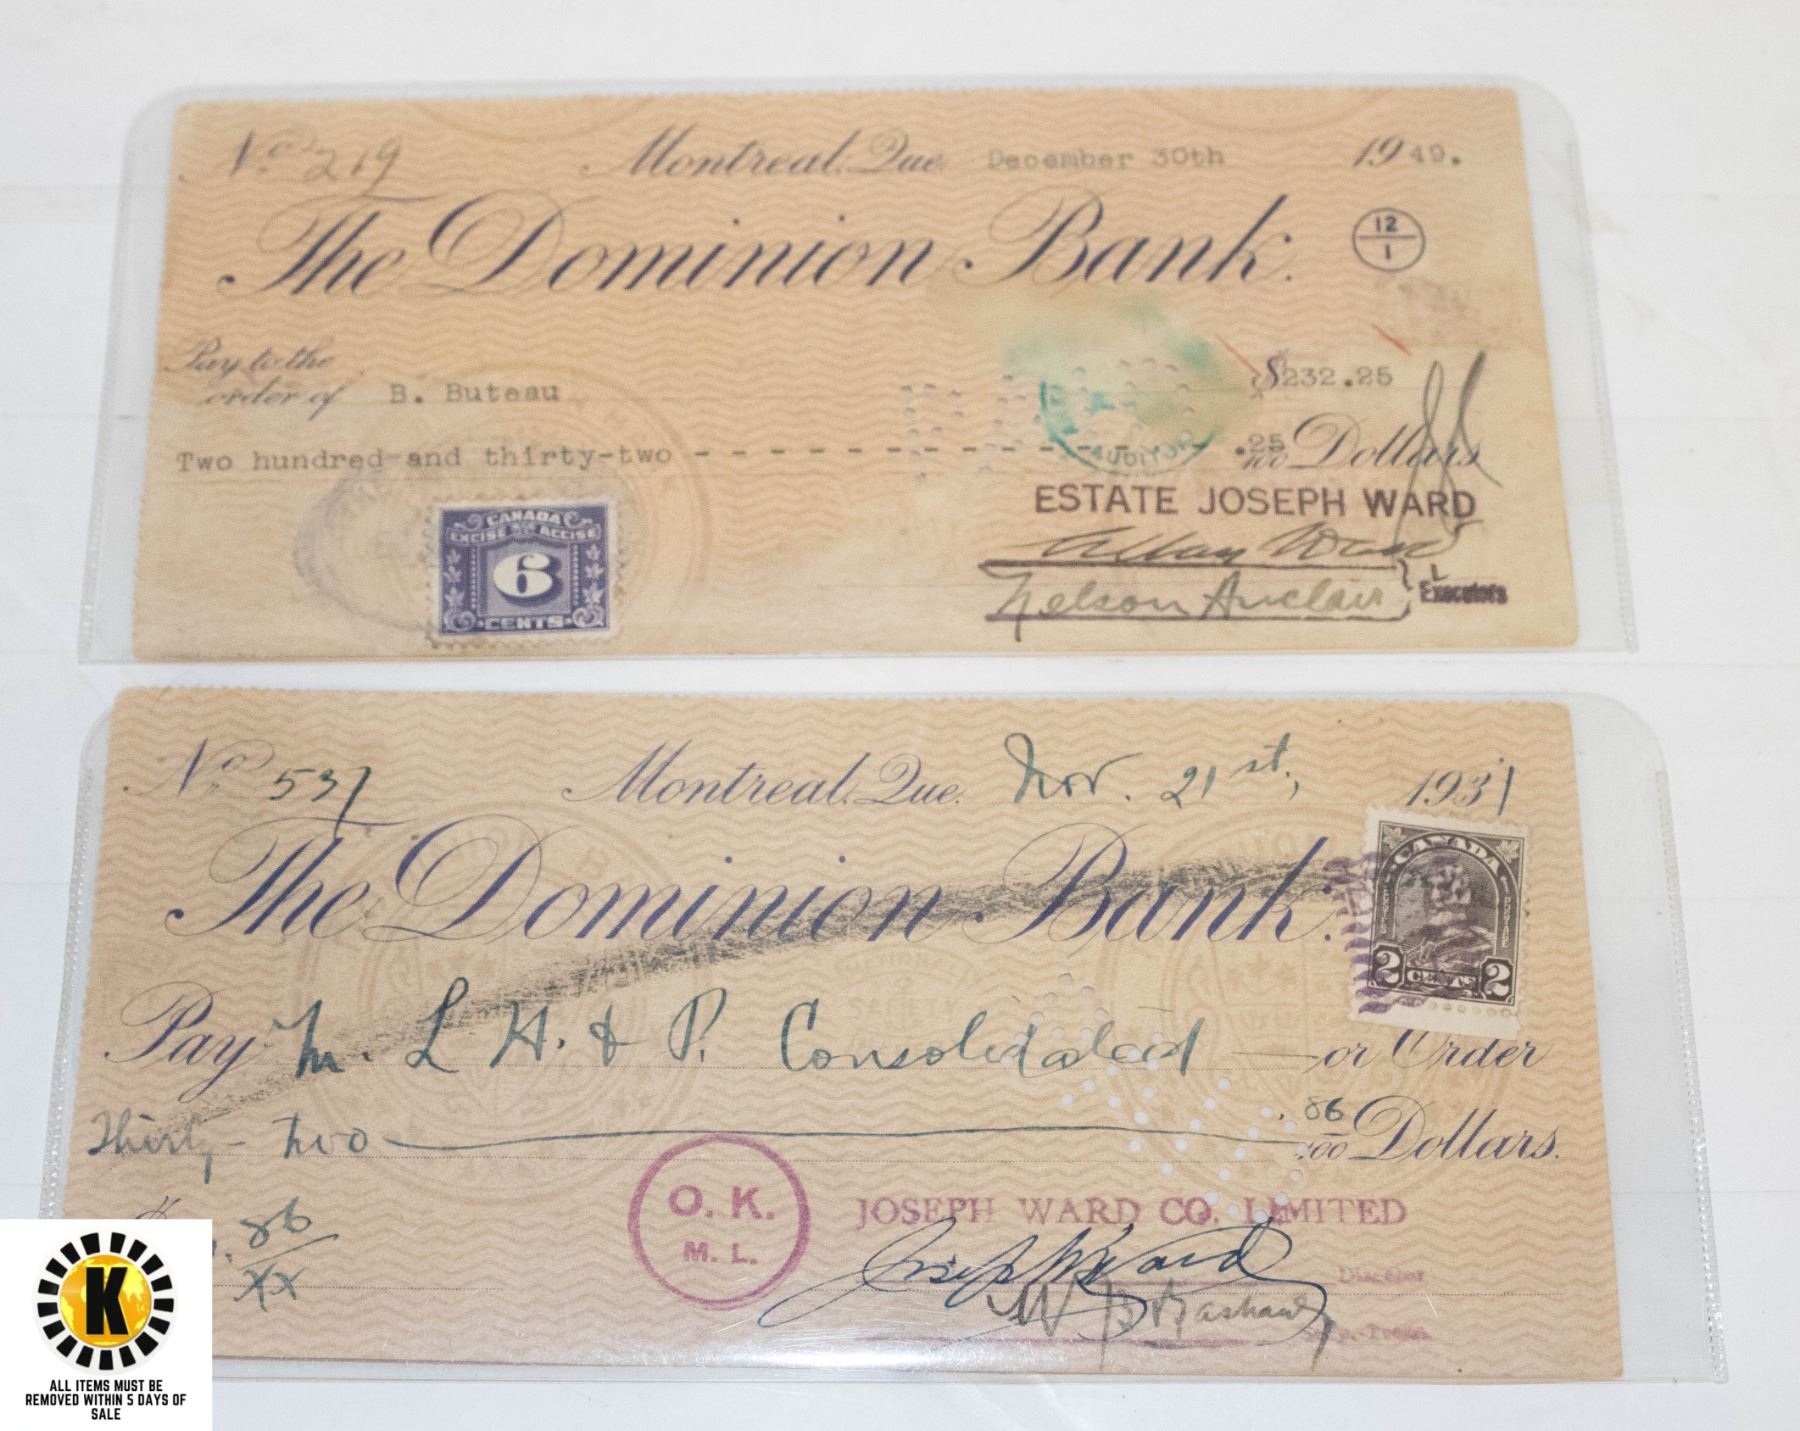 No 219 Montreal, Que. December 30th 1949.
The Dominion Bank.
12
1
Pay to the
order of B. Buteau $232.25
Two hundred and thirty-two - - - - - - - - - - - - - - - - .25/100 Dollars
AUDITOR
ESTATE JOSEPH WARD
CANADA
EXCISE ACCISE
6
CENTS
Nelson
Executors
No 537 Montreal, Que. Nov. 21st, 1931
The Dominion Bank.
CANADA
2 CENTS 2
Pay M. L H. & P. Consolidated or Order
Thirty-two .86/100 Dollars.
.86/xx
O. K.
M. L.
JOSEPH WARD CO. LIMITED
Joseph Ward
Director
K
ALL ITEMS MUST BE
REMOVED WITHIN 5 DAYS OF
SALE